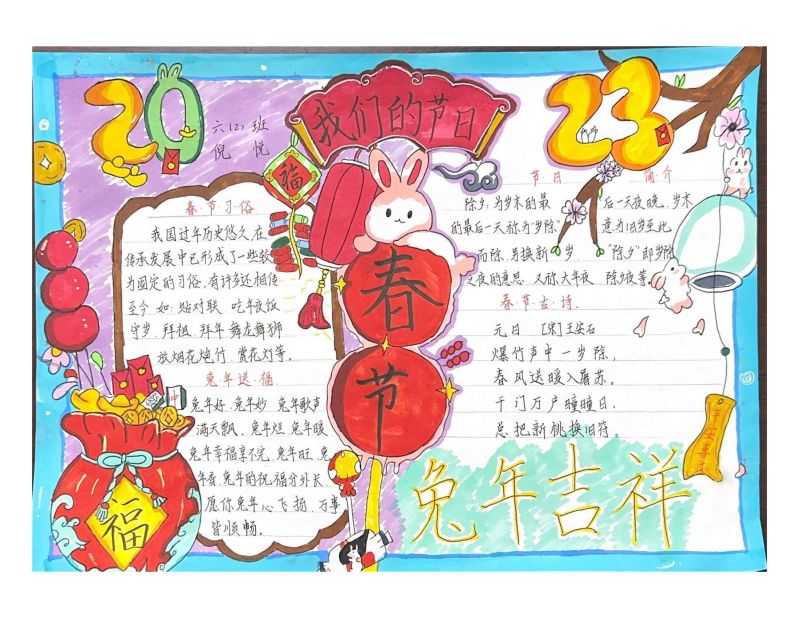 20
23
我们的节日
六(2)班
倪悦
福
春节习俗
我国过年历史悠久,在
传承发展中已形成了一些较
为固定的习俗.有许多还相传
至今.如:贴对联 吃年夜饭
守岁、拜祖 拜年 舞龙舞狮
放烟花炮竹 赏花灯等。
兔年送福
兔年好、兔年妙、兔年歌声
满天飘、兔年烂、兔年暖
兔年幸福享不完、兔年旺、兔
年看 兔年的祝福分外长
愿你兔年心飞扬、万事
皆顺畅。
福
春
节
节日 简介
除夕、为岁末的最 后一天夜晚、岁末
的最后一天称为"岁除" 意为旧岁至此
而除、另换新 岁. "除夕"即岁除
之夜的意思 又称大年夜 除夕夜等
春节古诗
元日 [宋]王安石
爆竹声中一岁除,
春风送暖入屠苏。
千门万户曈曈日,
总把新桃换旧符。
平安喜乐
兔年吉祥
中